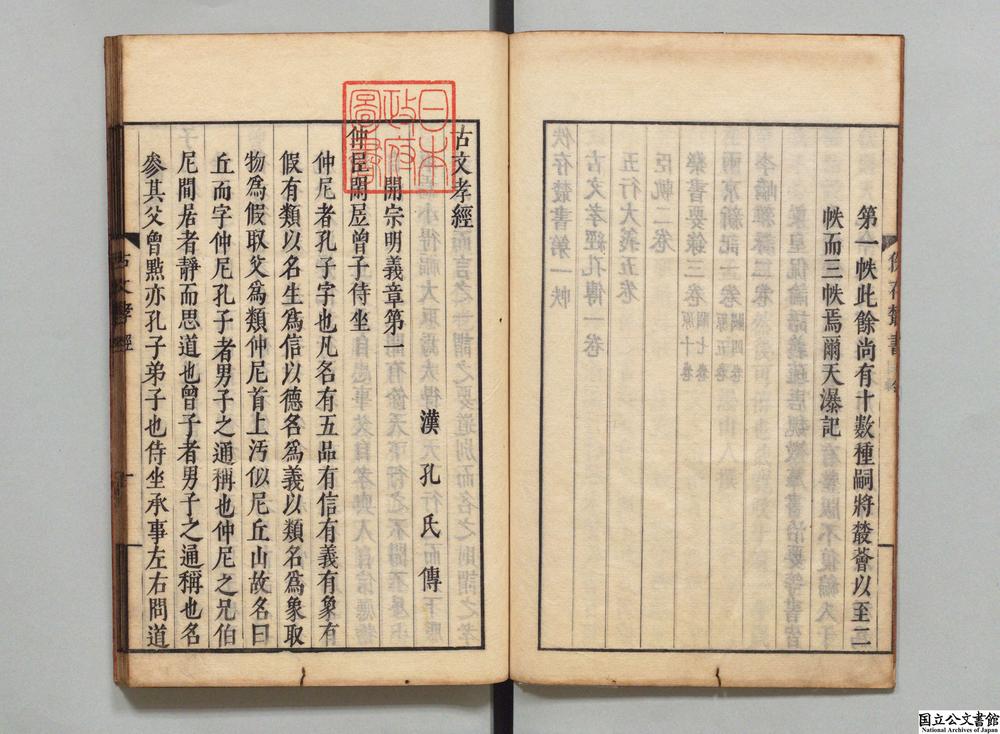 第一帙此餘尚有十數種嗣將叢薈以至二
帙而三帙焉爾天瀑記
佚存叢書
古文孝經
開宗明義章第一
漢孔氏傳
仲尼閒居曾子侍坐
仲尼者孔子字也凡名有五品有信有義有象有
假有類以名生為信以德名為義以類名為象取
物為假取父為類仲尼首上汚似尼丘山故名曰
丘而字仲尼孔子者男子之通稱也仲尼之兄伯
尼閒居者靜而思道也曾子者男子之通稱也名
參其父曾點亦孔子弟子也侍坐承事左右問道
古文孝經
一
日本
政府
圖書
国立公文書館
National Archives of Japan